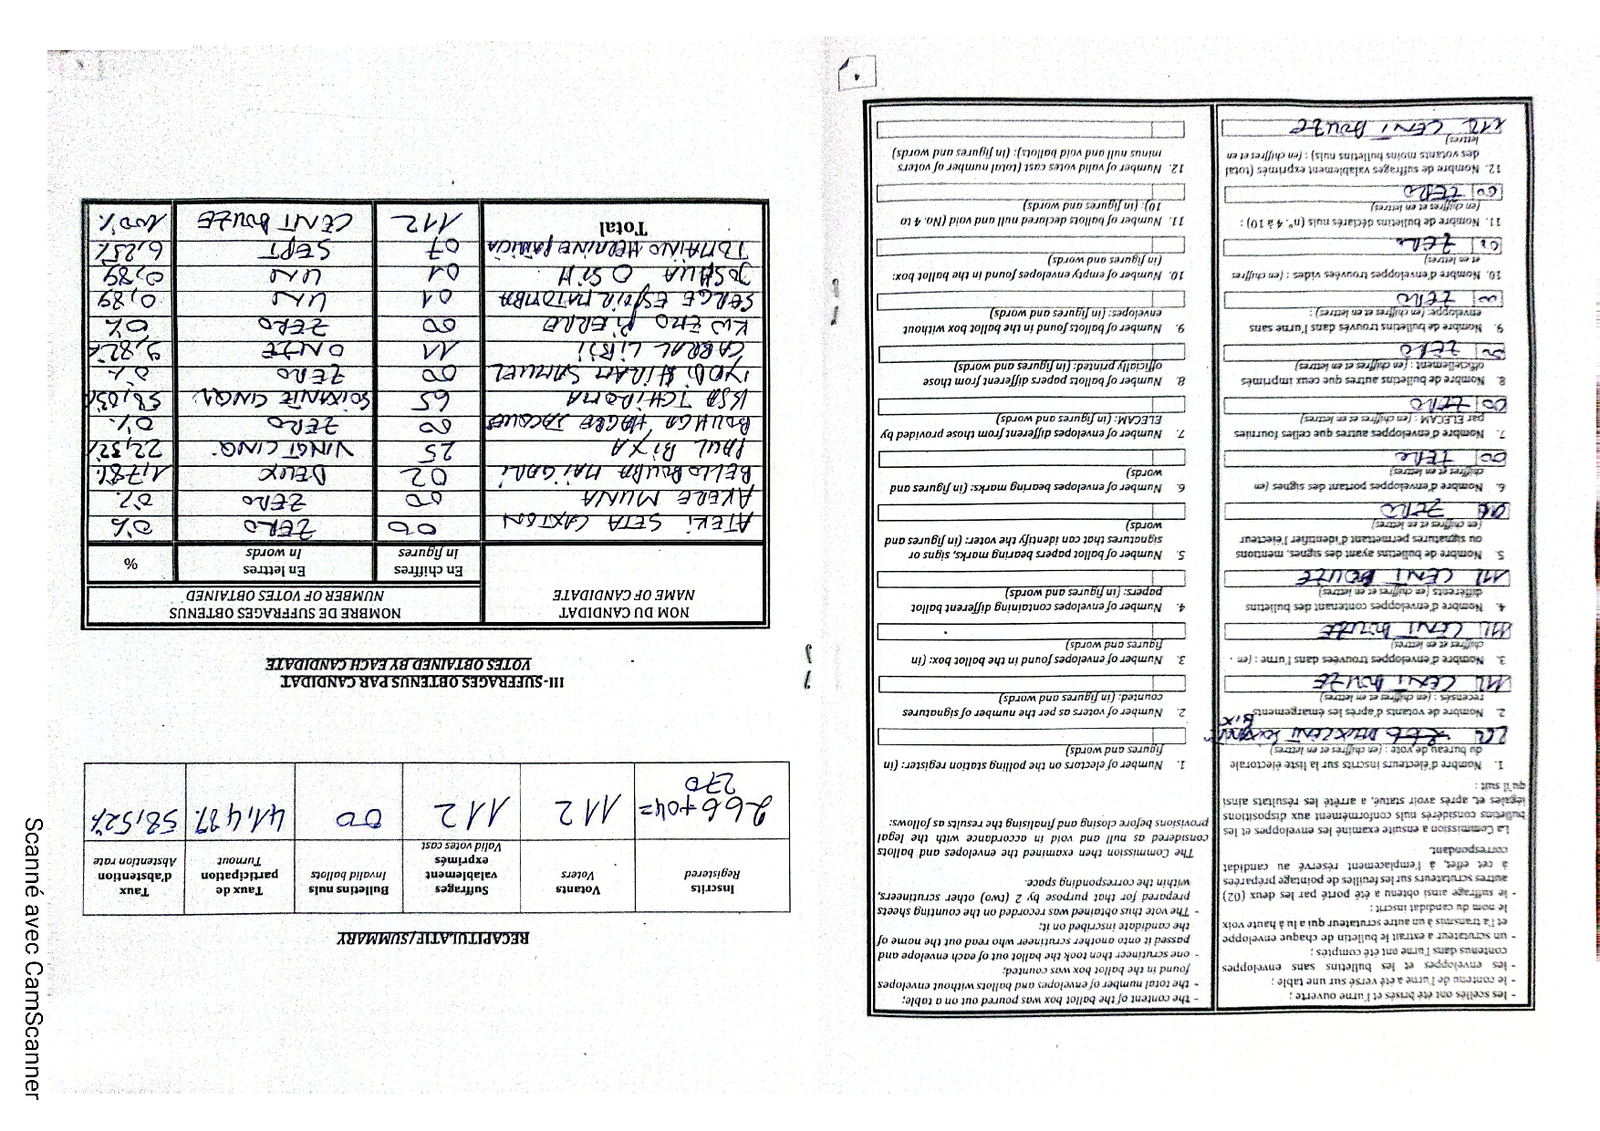 - les scellés ont été brisés et l'urne ouverte ;
- le contenu de l'urne a été versé sur une table ;
- les enveloppes et les bulletins sans enveloppes
contenus dans l'urne ont été comptés ;
- un scrutateur a extrait le bulletin de chaque enveloppe
et l'a transmis à un autre scrutateur qui a lu à haute voix
le nom du candidat inscrit ;
- le suffrage ainsi obtenu a été porté par les deux (02)
autres scrutateurs sur les feuilles de pointage préparées
à cet effet, à l'emplacement réservé au candidat
correspondant.
La Commission a ensuite examiné les enveloppes et les
bulletins considérés nuls conformément aux dispositions
légales et, après avoir statué, a arrêté les résultats ainsi
qu'il suit :
1. Nombre d'électeurs inscrits sur la liste électorale
du bureau de vote : (en chiffres et en lettres)
266 DEUX CENT SOIXANTE
SIX
2. Nombre de votants d'après les émargements
recensés : (en chiffres et en lettres)
112 CENT DOUZE
3. Nombre d'enveloppes trouvées dans l'urne : (en
chiffres et en lettres)
112 CENT DOUZE
4. Nombre d'enveloppes contenant des bulletins
différents (en chiffres et en lettres)
112 CENT DOUZE
5. Nombre de bulletins ayant des signes, mentions
ou signatures permettant d'identifier l'électeur
(en chiffres et en lettres)
00 ZERO
6. Nombre d'enveloppes portant des signes (en
chiffres et en lettres)
00 ZERO
7. Nombre d'enveloppes autres que celles fournies
par ELECAM : (en chiffres et en lettres)
00 ZERO
8. Nombre de bulletins autres que ceux imprimés
officiellement : (en chiffres et en lettres)
00 ZERO
9. Nombre de bulletins trouvés dans l'urne sans
enveloppe: (en chiffres et en lettres) :
00 ZERO
10. Nombre d'enveloppes trouvées vides : (en chiffres
et en lettres)
00 ZERO
11. Nombre de bulletins déclarés nuls (n° 4 à 10) :
(en chiffres et en lettres)
00 ZERO
12. Nombre de suffrages valablement exprimés (total
des votants moins bulletins nuls) : (en chiffres et en
lettres)
112 CENT DOUZE
- the content of the ballot box was poured out on a table;
- the total number of envelopes and ballots without envelopes
found in the ballot box was counted;
- one scrutineer then took the ballot out of each envelope and
passed it onto another scrutineer who read out the name of
the candidate inscribed on it;
- The vote thus obtained was recorded on the counting sheets
prepared for that purpose by 2 (two) other scrutineers,
within the corresponding space.
The Commission then examined the envelopes and ballots
considered as null and void in accordance with the legal
provisions before closing and finalising the results as follows:
1. Number of electors on the polling station register: (in
figures and words)
2. Number of voters as per the number of signatures
counted: (in figures and words)
3. Number of envelopes found in the ballot box: (in
figures and words)
4. Number of envelopes containing different ballot
papers: (in figures and words)
5. Number of ballot papers bearing marks, signs or
signatures that can identify the voter: (in figures and
words)
6. Number of envelopes bearing marks: (in figures and
words)
7. Number of envelopes different from those provided by
ELECAM: (in figures and words)
8. Number of ballots papers different from those
officially printed: (in figures and words)
9. Number of ballots found in the ballot box without
envelopes: (in figures and words)
10. Number of empty envelopes found in the ballot box:
(in figures and words)
11. Number of ballots declared null and void (No. 4 to
10): (in figures and words)
12. Number of valid votes cast (total number of voters
minus null and void ballots): (in figures and words)
RECAPITULATIF/SUMMARY
Inscrits Registered | Votants Voters | Suffrages valablement exprimés Valid votes cast | Bulletins nuls Invalid ballots | Taux de participation Turnout | Taux d'abstention Abstention rate
266+04= 270 | 112 | 112 | 00 | 41,48% | 58,52%
III- SUFFRAGES OBTENUS PAR CANDIDAT
VOTES OBTAINED BY EACH CANDIDATE
NOM DU CANDIDAT NAME OF CANDIDATE | NOMBRE DE SUFFRAGES OBTENUS NUMBER OF VOTES OBTAINED
En chiffres In figures | En lettres In words | %
ATEKI SETA CAXTON | 00 | ZERO | 0%
AKERE MUNA | 00 | ZERO | 0%
BELLO BOUBA MAIGARI | 02 | DEUX | 1,78%
PAUL BIYA | 25 | VINGT CINQ | 22,32%
BOUHGA HAGBE JACQUES | 00 | ZERO | 0%
ISSA TCHIROMA | 65 | SOIXANTE CINQ | 58,03%
IYODI HIRAM SAMUEL | 00 | ZERO | 0%
CABRAL LIBII | 11 | ONZE | 9,82%
KWEMO PIERRE | 00 | ZERO | 0%
SERGE ESPOIR MATOMBA | 01 | UN | 0,89
JOSHUA OSIH | 01 | UN | 0,89
TOMAINO HERMINE PATRICIA | 07 | SEPT | 6,25%
Total | 112 | CENT DOUZE | 100%
Scanné avec CamScanner